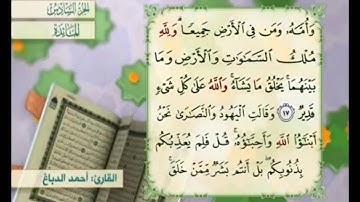 الجزء السادس
المائدة
وَأُمَّهُۥ وَمَن فِى ٱلْأَرْضِ جَمِيعًا ۗ وَلِلَّهِ
مُلْكُ ٱلسَّمَٰوَٰتِ وَٱلْأَرْضِ وَمَا
بَيْنَهُمَا ۚ يَخْلُقُ مَا يَشَآءُ ۚ وَٱللَّهُ عَلَىٰ كُلِّ شَىْءٍ
قَدِيرٌ ١٧ وَقَالَتِ ٱلْيَهُودُ وَٱلنَّصَٰرَىٰ نَحْنُ
أَبْنَٰٓؤُا۟ ٱللَّهِ وَأَحِبَّٰٓؤُهُۥ ۚ قُلْ فَلِمَ يُعَذِّبُكُم
بِذُنُوبِكُم ۖ بَلْ أَنتُم بَشَرٌ مِّمَّنْ خَلَقَ ۚ
القارئ: أحمد الدباغ